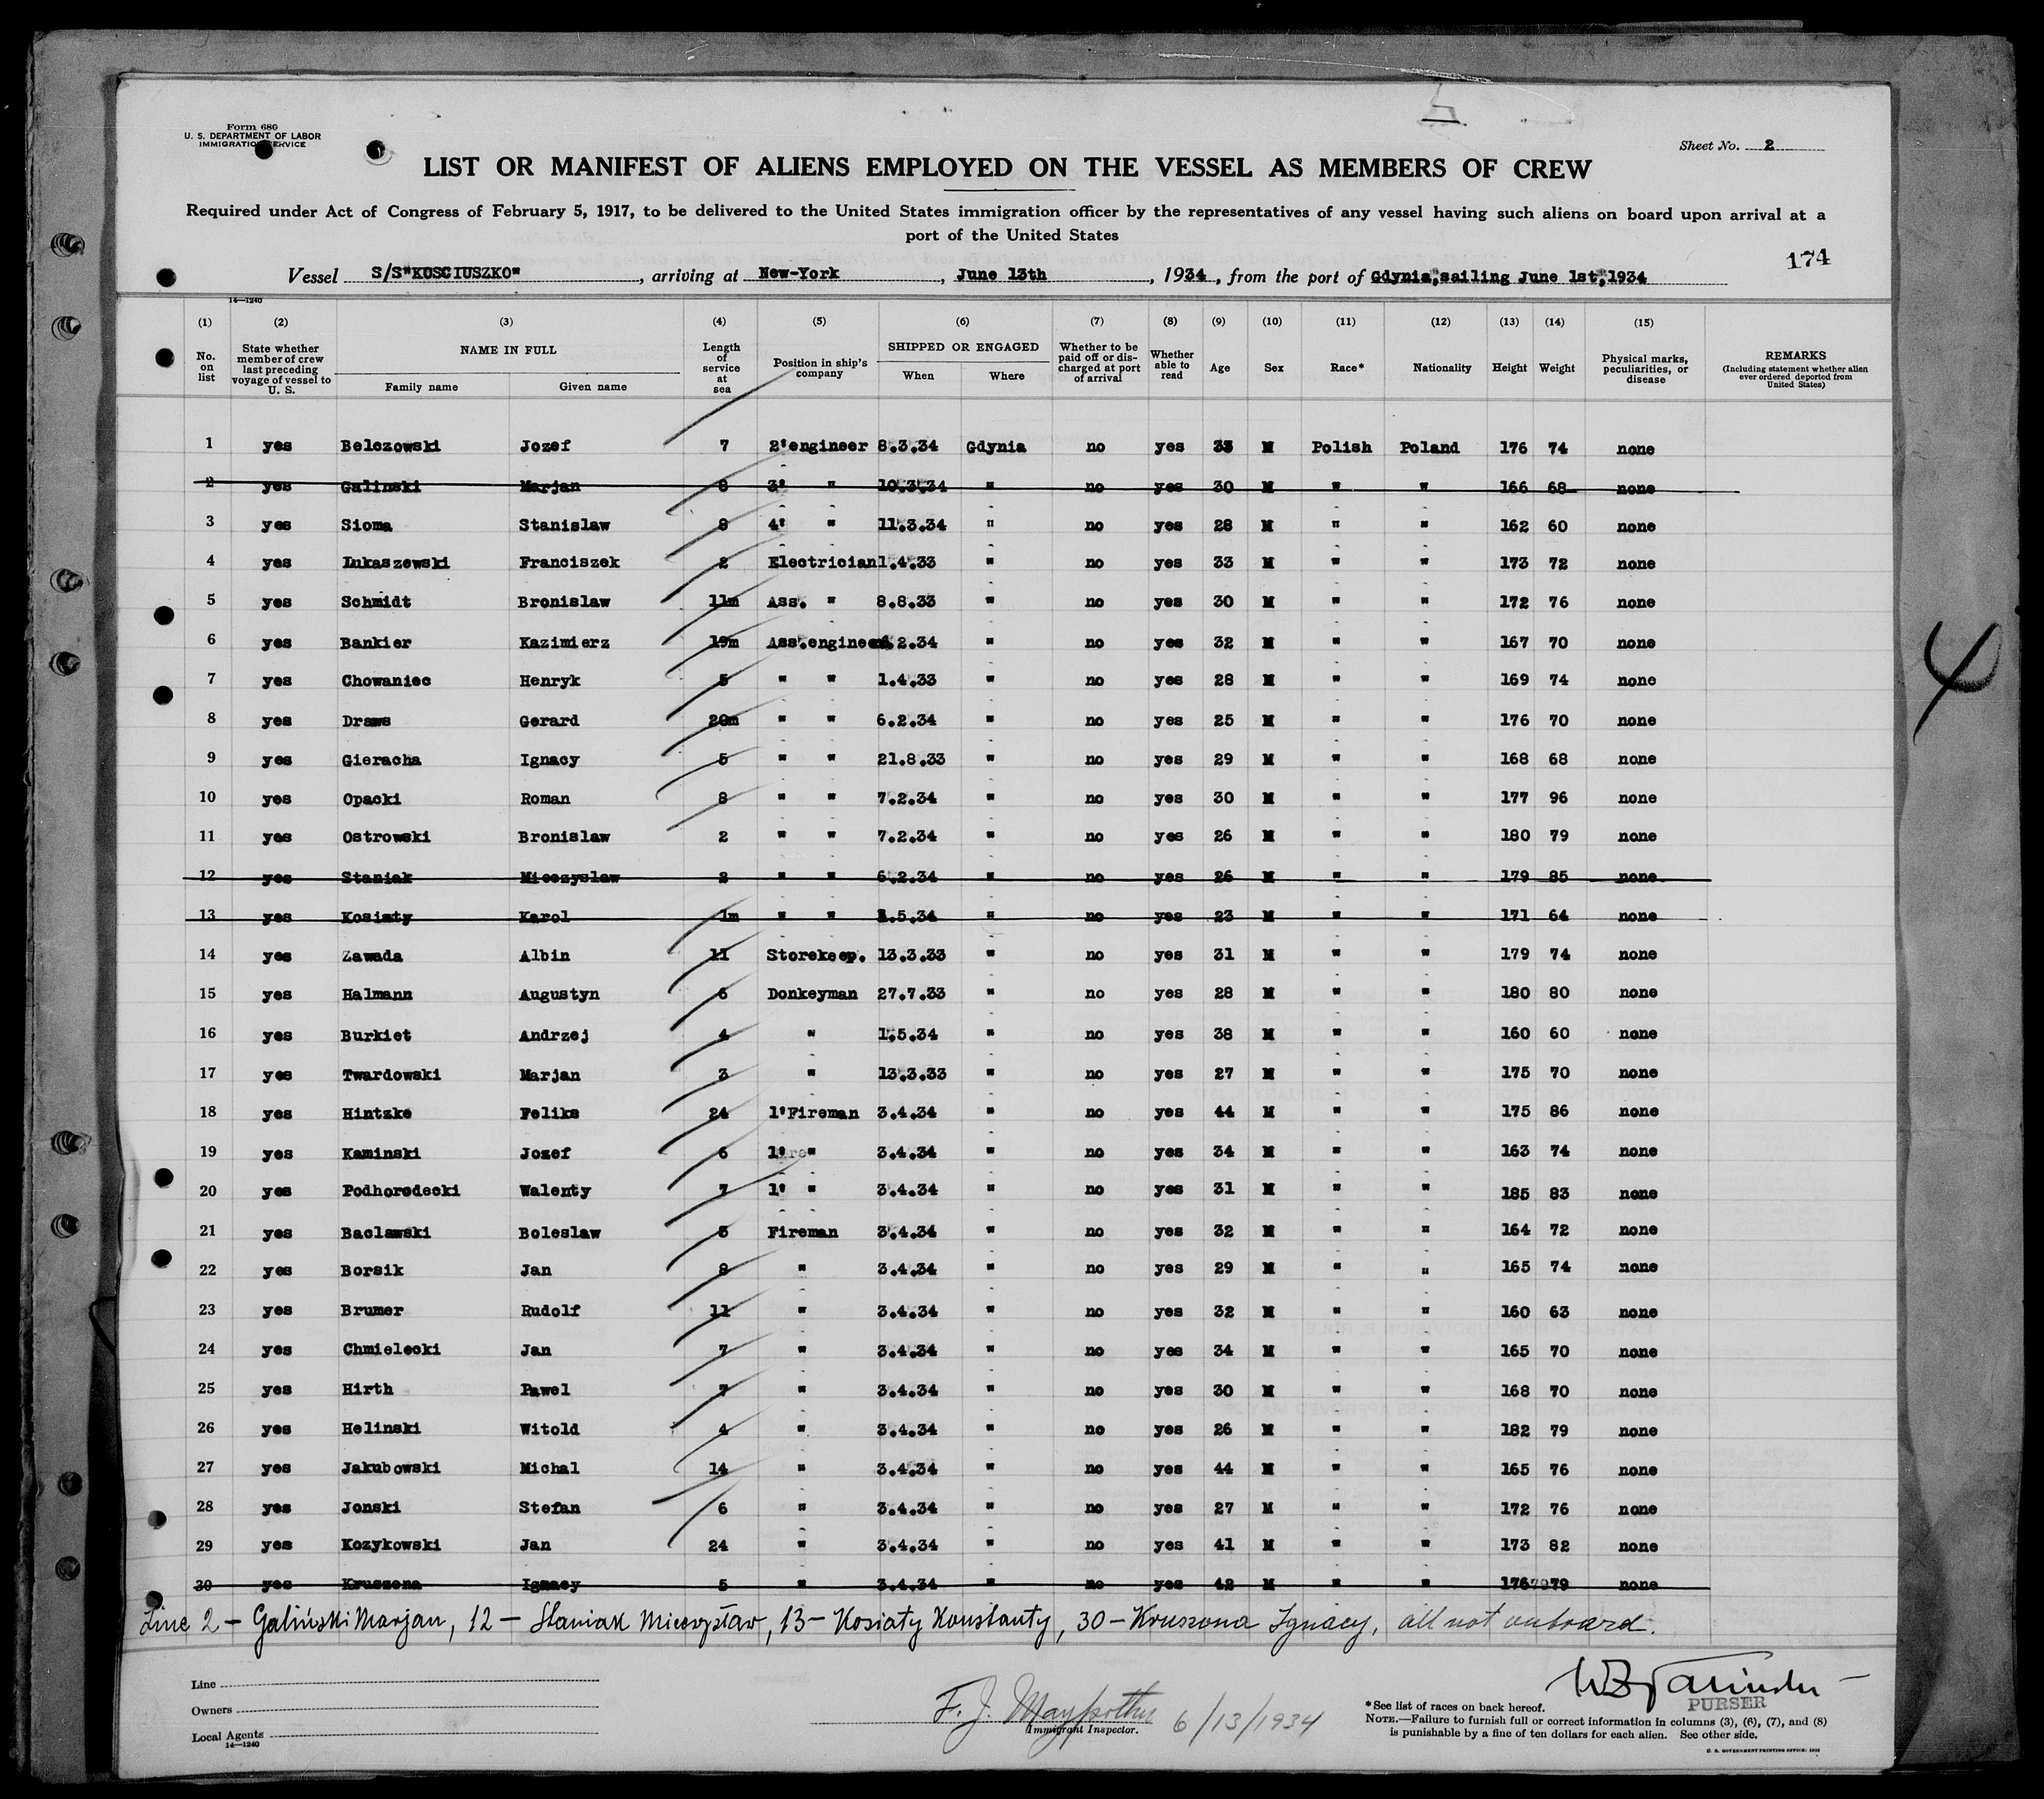 Form 680
U. S. DEPARTMENT OF LABOR
IMMIGRATION SERVICE
Sheet No. 2
LIST OR MANIFEST OF ALIENS EMPLOYED ON THE VESSEL AS MEMBERS OF CREW
Required under Act of Congress of February 5, 1917, to be delivered to the United States immigration officer by the representatives of any vessel having such aliens on board upon arrival at a
port of the United States
174
Vessel S/S"KOSCIUSZKO", arriving at New-York, June 13th, 1934, from the port of Gdynia, sailing June 1st, 1934
14—1240
(1) (2) (3) (4) (5) (6) (7) (8) (9) (10) (11) (12) (13) (14) (15)
No. on list State whether member of crew last preceding voyage of vessel to U. S. NAME IN FULL Family name Given name Length of service at sea Position in ship's company SHIPPED OR ENGAGED When Where Whether to be paid off or discharged at port of arrival Whether able to read Age Sex Race* Nationality Height Weight Physical marks, peculiarities, or disease REMARKS (Including statement whether alien ever ordered deported from United States)
1 yes Belczowski Jozef 7 2'engineer 8.3.34 Gdynia no yes 33 M Polish Poland 176 74 none
2 yes Galinski Marjan 8 3' " 10.3.34 " no yes 30 M " " 166 68 none
3 yes Sioma Stanislaw 8 4' " 11.3.34 " no yes 28 M " " 162 60 none
4 yes Lukaszewski Franciszek 2 Electrician 1.4.33 " no yes 33 M " " 173 72 none
5 yes Schmidt Bronislaw 11m Ass. " 8.8.33 " no yes 30 M " " 172 76 none
6 yes Bankier Kazimierz 19m Ass.engineer .2.34 " no yes 32 M " " 167 70 none
7 yes Chowaniec Henryk 5 " " 1.4.33 " no yes 28 M " " 169 74 none
8 yes Draws Gerard 20m " " 6.2.34 " no yes 25 M " " 176 70 none
9 yes Gieracha Ignacy 5 " " 21.8.33 " no yes 29 M " " 168 68 none
10 yes Opacki Roman 8 " " 7.2.34 " no yes 30 M " " 177 96 none
11 yes Ostrowski Bronislaw 2 " " 7.2.34 " no yes 26 M " " 180 79 none
12 yes Staniak Mieczyslaw 2 " " 6.2.34 " no yes 26 M " " 179 85 none
13 yes Kosiaty Karol 1m " " 1.5.34 " no yes 23 M " " 171 64 none
14 yes Zawada Albin 11 Storekeep. 13.3.33 " no yes 31 M " " 179 74 none
15 yes Halmann Augustyn 6 Donkeyman 27.7.33 " no yes 28 M " " 180 80 none
16 yes Burkiet Andrzej 4 " 1.5.34 " no yes 38 M " " 160 60 none
17 yes Twardowski Marjan 3 " 13.3.33 " no yes 27 M " " 175 70 none
18 yes Hintzke Feliks 24 1'Fireman 3.4.34 " no yes 44 M " " 175 86 none
19 yes Kaminski Jozef 6 1' " 3.4.34 " no yes 34 M " " 163 74 none
20 yes Podhorodecki Walenty 7 1' " 3.4.34 " no yes 31 M " " 185 83 none
21 yes Baclawski Boleslaw 5 Fireman 3.4.34 " no yes 32 M " " 164 72 none
22 yes Borsik Jan 8 " 3.4.34 " no yes 29 M " " 165 74 none
23 yes Brumer Rudolf 11 " 3.4.34 " no yes 32 M " " 160 63 none
24 yes Chmielecki Jan 7 " 3.4.34 " no yes 34 M " " 165 70 none
25 yes Hirth Pawel 7 " 3.4.34 " no yes 30 M " " 168 70 none
26 yes Helinski Witold 4 " 3.4.34 " no yes 26 M " " 182 79 none
27 yes Jakubowski Michal 14 " 3.4.34 " no yes 44 M " " 165 76 none
28 yes Jonski Stefan 6 " 3.4.34 " no yes 27 M " " 172 76 none
29 yes Kozykowski Jan 24 " 3.4.34 " no yes 41 M " " 173 82 none
30 yes Kruszona Ignacy 5 " 3.4.34 " no yes 42 M " " 176 79 none
Line 2 – Galiński Marjan, 12 – Staniak Mieczysław, 13 – Kosiaty Konstanty, 30 – Kruszona Ignacy, all not onboard.
4
Line
Owners
Local Agents
14—1240
F. J. 6/13/1934
Immigrant Inspector.
PURSER
*See list of races on back hereof.
NOTE.—Failure to furnish full or correct information in columns (3), (6), (7), and (8)
is punishable by a fine of ten dollars for each alien. See other side.
U. S. GOVERNMENT PRINTING OFFICE: